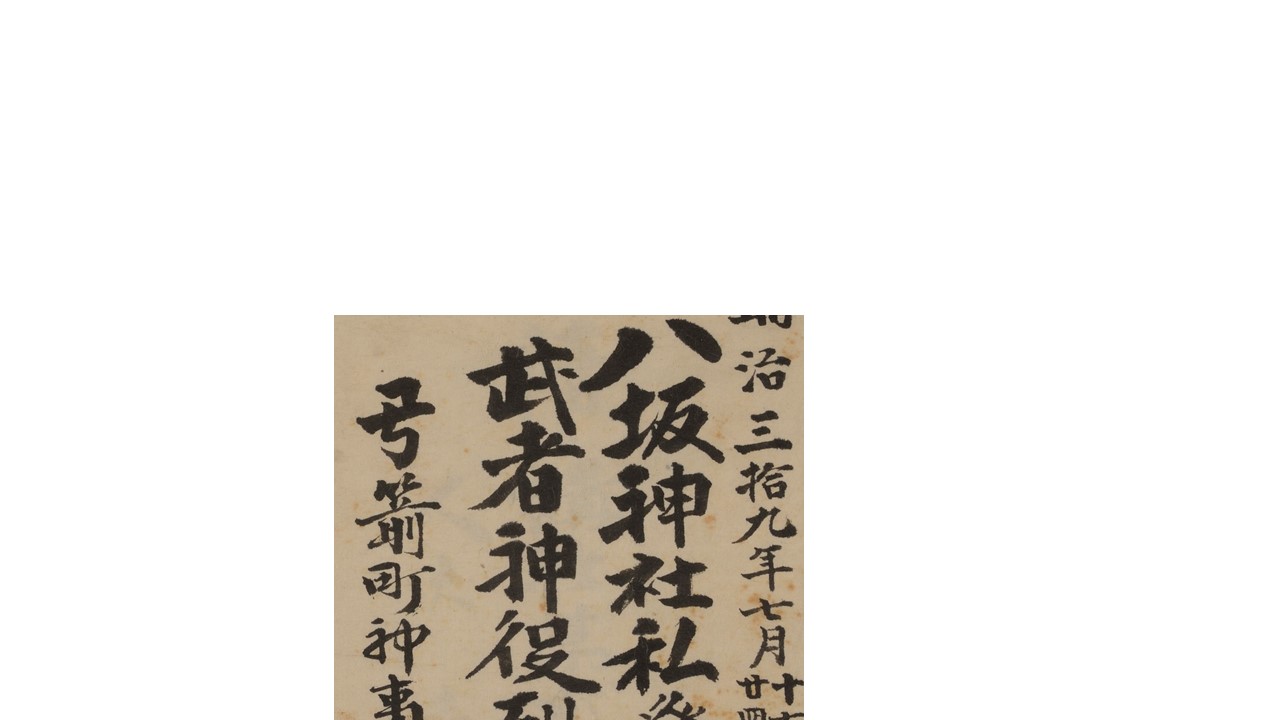 治三拾九年七月十
廿
八坂神社私祭
武者神役列
弓箭町神事